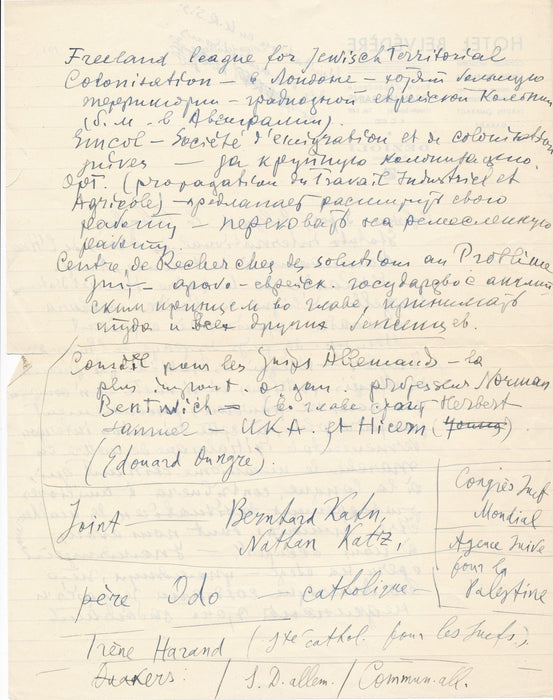 HOTEL BELVÉDÈRE
Freeland league for Jewisch Territorial
Colonisation – в Лондоне – хотят большую
территорию – грандиозной еврейской колонии
(б.м. в Австралии).
Emcol – Société d'émigration et de colonisation
juives – за крупную колонизацию.
Ort. (propagation du Travail Industriel et
Agricole) – предлагает расширить свою
работу – на ремесленную
работу.
Centre de Recherches des solutions au Problème
juif – арабо-еврейск. государство с англий-
ским принцем во главе, принимать
туда и всех других беженцев.
Conseil pour les Juifs Allemands – la
plus import. organ. professeur Norman
Bentwich – (во главе стоит Herbert
Samuel – et Hicem
(Edouard Oungre)
Joint – Bernhard Kahn,
Nathan Katz,
père Odo – catholique –
Congrès Juif
Mondial
Agence Juive
pour la
Palestine
Irène Harand (Sté cathol. pour les Juifs).
Quakers: / S.D. allem. / Commun. all.